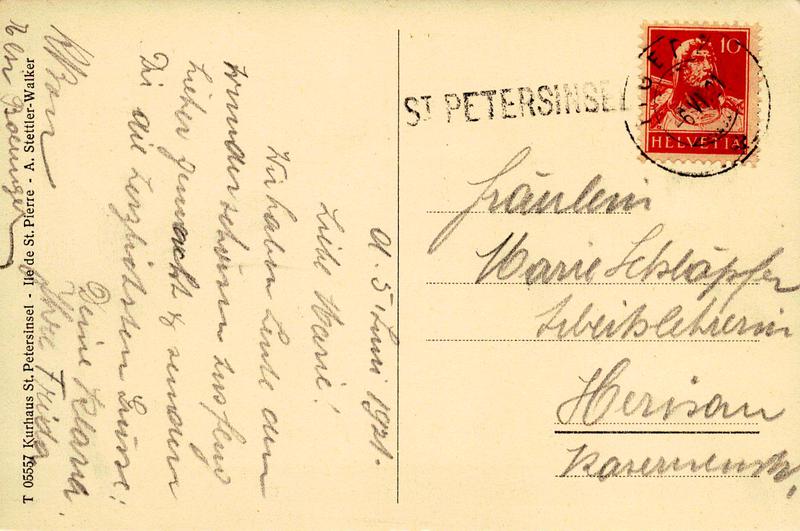 d. 5 Juni 1921.
Liebe Marie!
Wir haben heute den
wunderschönen Ausflug
hieher gemacht & senden
Dir die herzlichsten Grüsse!
Deine Klara.
Ihre Frieda
T 05557 Kurhaus St. Petersinsel - Ile de St. Pierre - A. Stettler-Walker
ST PETERSINSEL
10
HELVETIA
Fräulein
Marie Schläpfer
Arbeitslehrerin
Herisau
Kasernenstr.